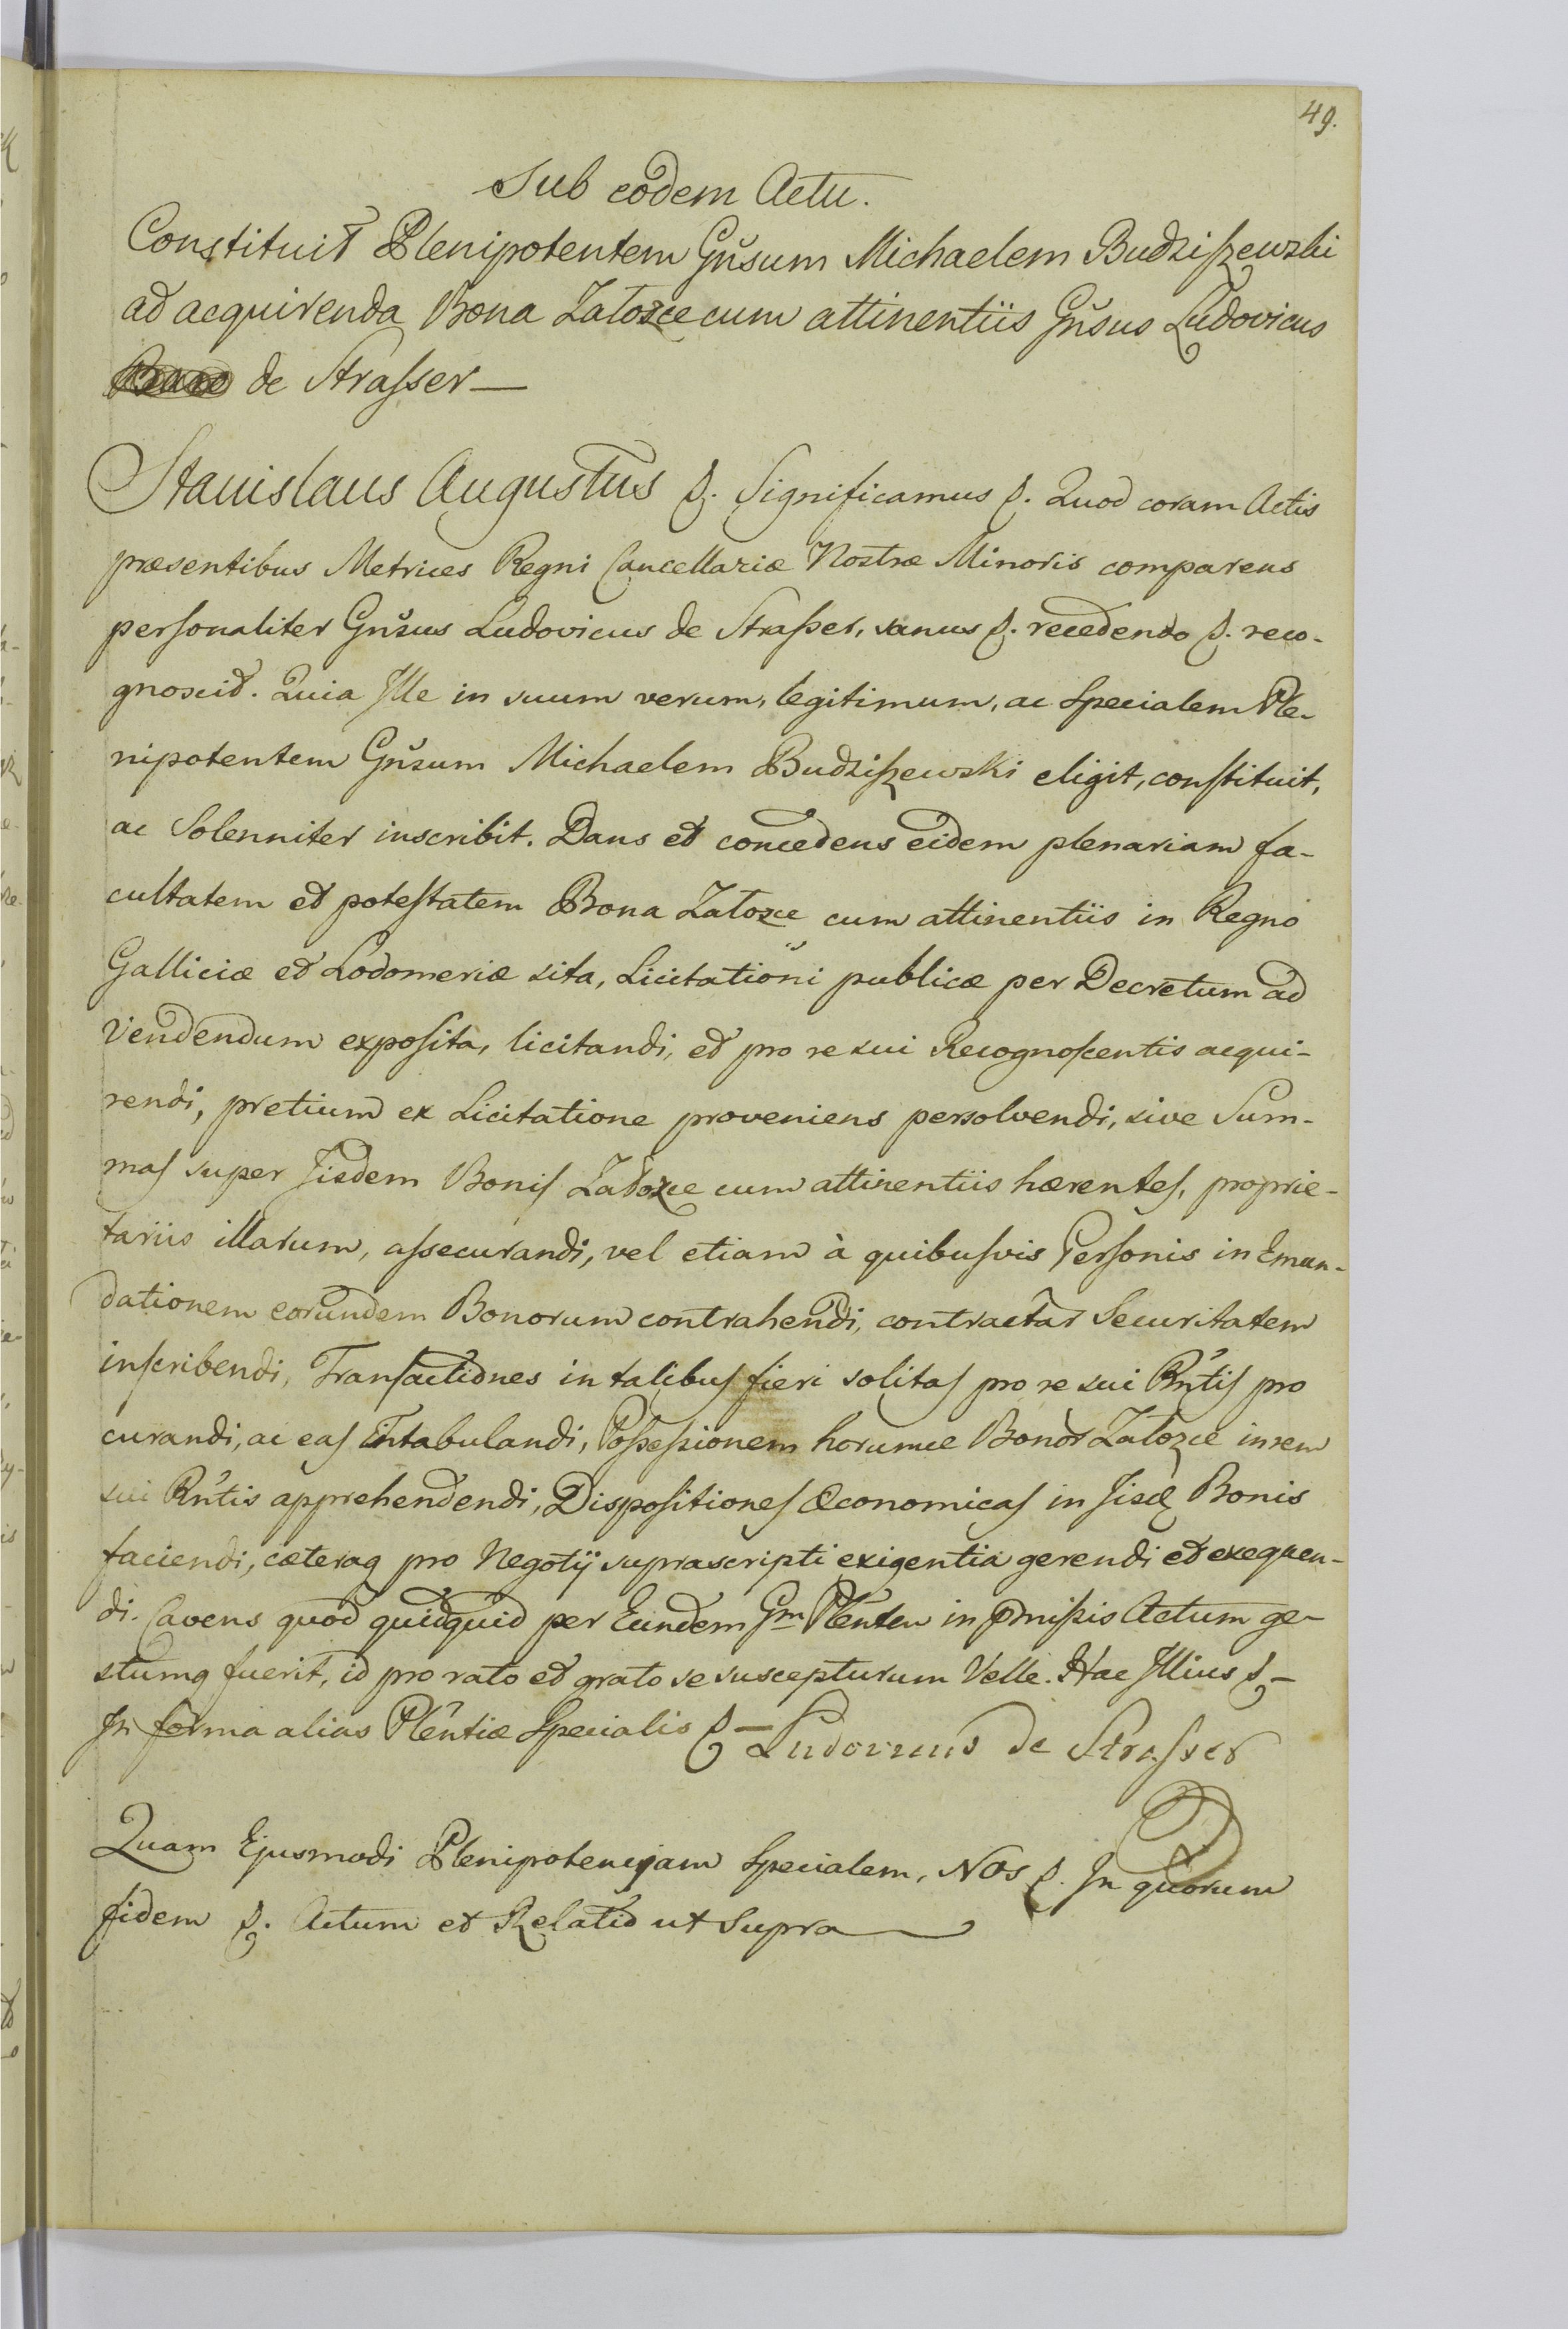 49.
Sub eodem Actu.
Constituit Plenipotentem Gnsum Michaelem Budziszewski
ad acquirenda Bona Załosce cum attinentiis Gnsus Ludovicus
de Strasser —
Stanislaus Augustus &. Significamus &. Quod coram Actis
præsentibus Metrices Regni Cancellariæ Nostræ Minoris comparens
personaliter Gnsus Ludovicus de Strasser, sanus &. recedendo &. reco-
gnoscit. Quia Ille in suum verum, legitimum, ac Specialem Ple-
nipotentem Gnsum Michaelem Budziszewski eligit, constituit,
ac Solenniter inscribit. Dans et concedens eidem plenariam fa-
cultatem et potestatem Bona Załozce cum attinentiis in Regno
Galliciæ et Lodomeriæ sita, Licitationi publicæ per Decretum ad
vendendum exposita, licitandi, et pro re sui Recognoscentis acqui-
rendi, pretium ex Licitatione proveniens persolvendi, sive Sum-
mas super Iisdem Bonis Załozce cum attinentiis hærentes, proprie-
tariis illarum, assecurandi, vel etiam à quibusvis Personis in Emun-
dationem eorundem Bonorum contrahendi, contractar Securitatem
inscribendi, Transactiones in talibus fieri solitas pro re sui Rntis pro
curandi, ac eas Intabulandi, Possessionem horumce Bonor Załozce in rem
sui Rntis apprehendendi, Dispositiones Œconomicas in Iisd Bonis
faciendi, cæteraq pro Negotij suprascripti exigentia gerendi et exequen-
di. Cavens quod quidquid per Eundem Gm Plenten in pmissis Actum ge-
stumq fuerit, id pro rato et grato se suscepturum Velle. Hac Illius &-
In forma alias Plentiæ Specialis & — Ludovicus de Strasser
Quam Ejusmodi Plenipotencjam Specialem, Nos &. In quorum
fidem &. Actum et Relatio ut Supra